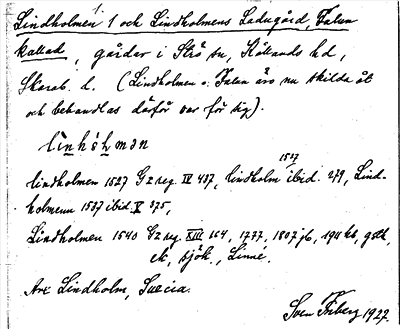 Lindholmen 1 och Lindholmens Ladugård, Falan
kallad, gårdar i Strö sn, Kållands hd,
Skarab. l. (Lindholmen o. Falan äro nu skilda åt
och behandlas därför var för sig).
lindholmen 1527 G I reg. IV 437, lindholm 1537 ibid. 279, Lind-
holmenn 1537 ibid. X 375,
Lindholmen 1540 G I reg. XIII 164, 1777, 1807 jb, 1911 kb, gdk,
ek, sjök., Linné.
Ave Lindholm, Suecia.
Sven Friberg 1927.